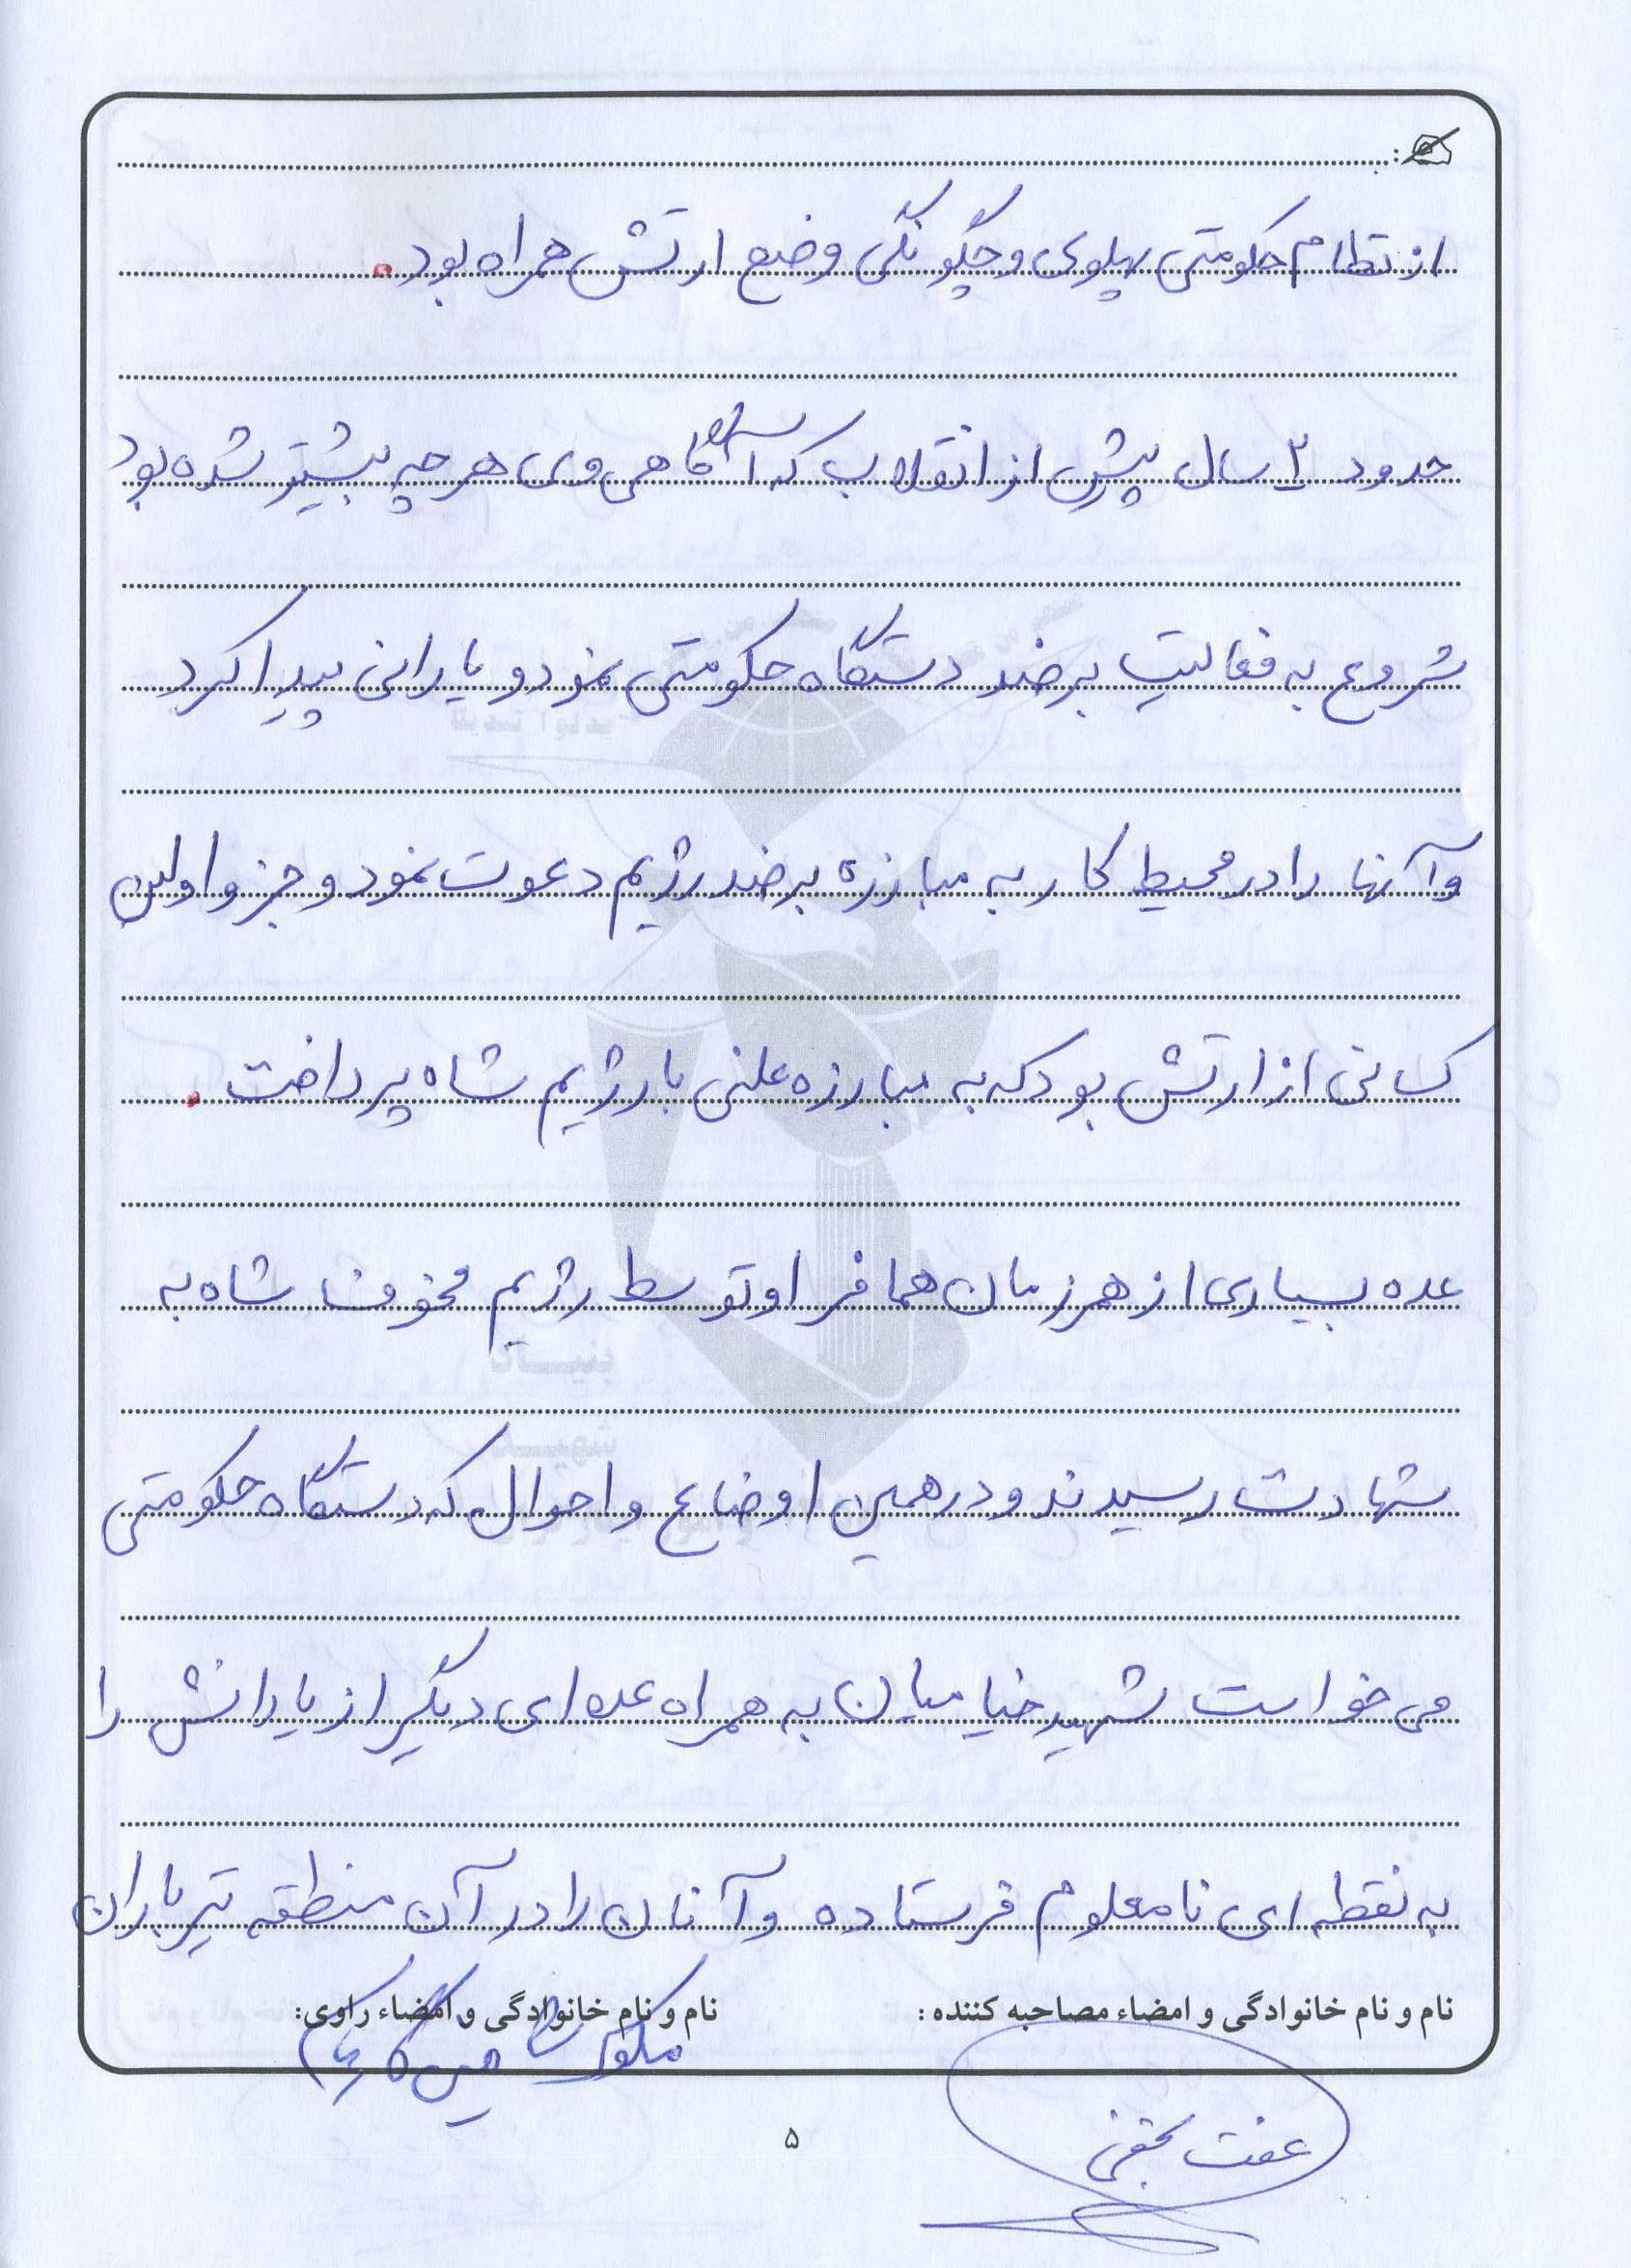 از نظام حکومتی پهلوی و چگونگی وضع ارتش همراه بود.
حدود ۲ سال پیش از انقلاب که آگاهی وی هر چه بیشتر شده بود
شروع به فعالیت بر ضد دستگاه حکومتی نمود و یارانی پیدا کرد
و آنها را در محیط کار به مبارزه بر ضد رژیم دعوت نمود و جزو اولین
کسانی از ارتش بود که به مبارزه علنی با رژیم شاه پرداخت.
عده بسیاری از همرزمان همافر او توسط رژیم مخوف شاه به
شهادت رسیدند و در همین اوضاع و احوال که دستگاه حکومتی
می خواست شهید خیامیان به همراه عده ای دیگر از یارانش را
به نقطه ای نامعلوم فرستاده و آنان را در آن منطقه تیرباران
نام و نام خانوادگی و امضاء مصاحبه کننده: نام و نام خانوادگی و امضاء راوی:
عفت نجفی
۵